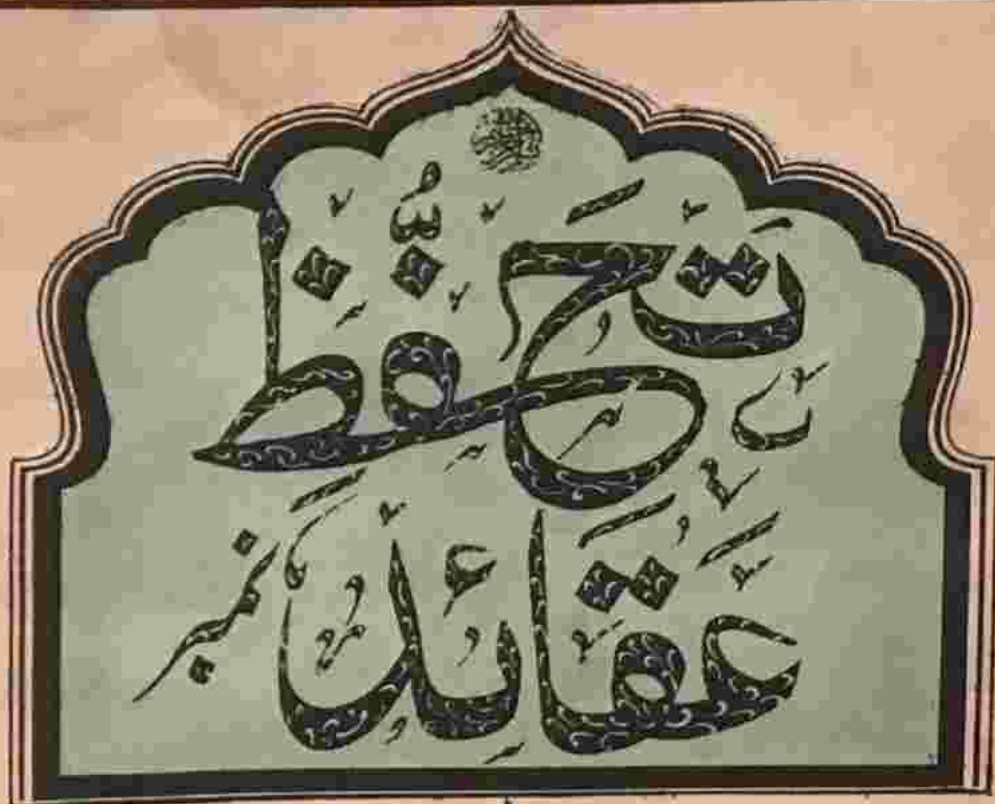 تَحَفُّظِ
عَقَائد نمبر